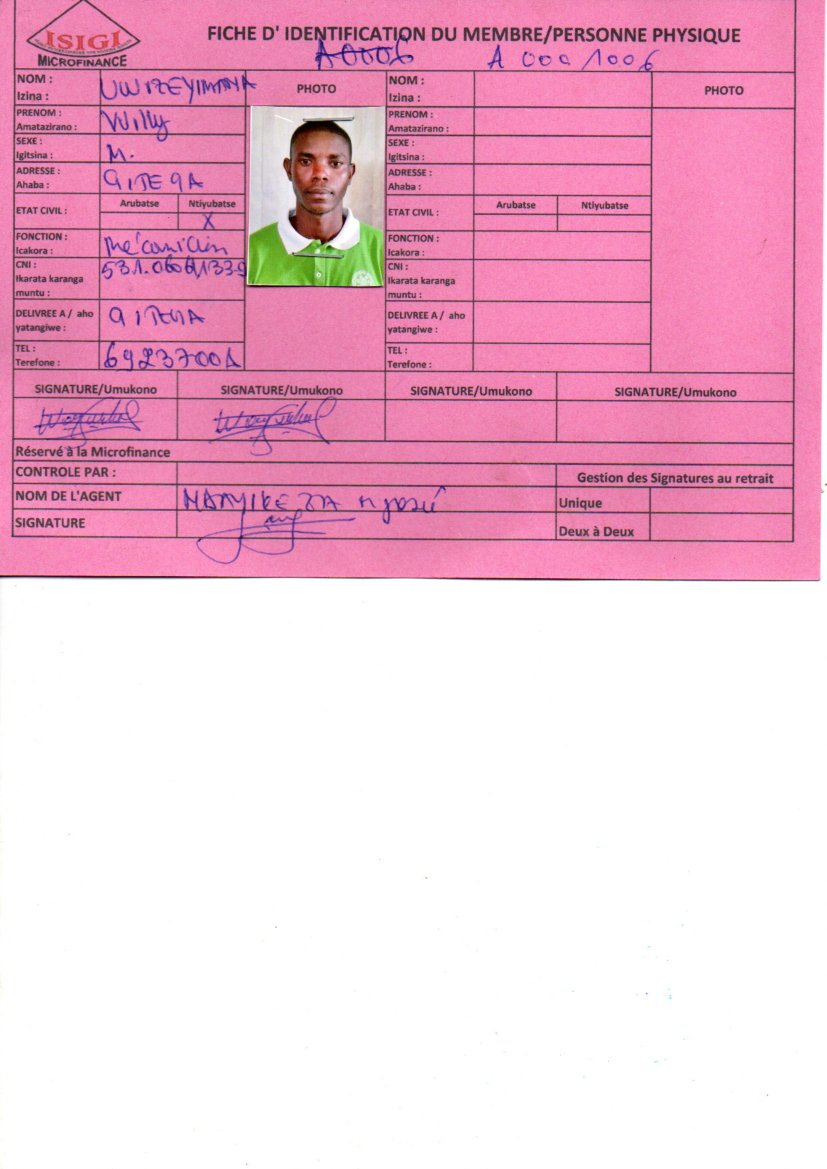 ISIGI
MICROFINANCE
FICHE D' IDENTIFICATION DU MEMBRE/PERSONNE PHYSIQUE
A0006 A 000/1006
NOM :
Izina : UWIZEYIMANA
PRENOM :
Amatazirano : Willy
SEXE :
Igitsina : M.
ADRESSE :
Ahaba : GITEGA
ETAT CIVIL : Arubatse Ntiyubatse
X
FONCTION :
Icakora : Mécanicien
CNI :
Ikarata karanga
muntu :
DELIVREE A / aho
yatangiwe : GITEGA
TEL :
Terefone : 69237001
PHOTO
NOM :
Izina :
PRENOM :
Amatazirano :
SEXE :
Igitsina :
ADRESSE :
Ahaba :
ETAT CIVIL : Arubatse Ntiyubatse
FONCTION :
Icakora :
CNI :
Ikarata karanga
muntu :
DELIVREE A / aho
yatangiwe :
TEL :
Terefone :
PHOTO
SIGNATURE/Umukono SIGNATURE/Umukono SIGNATURE/Umukono SIGNATURE/Umukono
Réservé à la Microfinance
CONTROLE PAR :
NOM DE L'AGENT
SIGNATURE
Gestion des Signatures au retrait
Unique
Deux à Deux